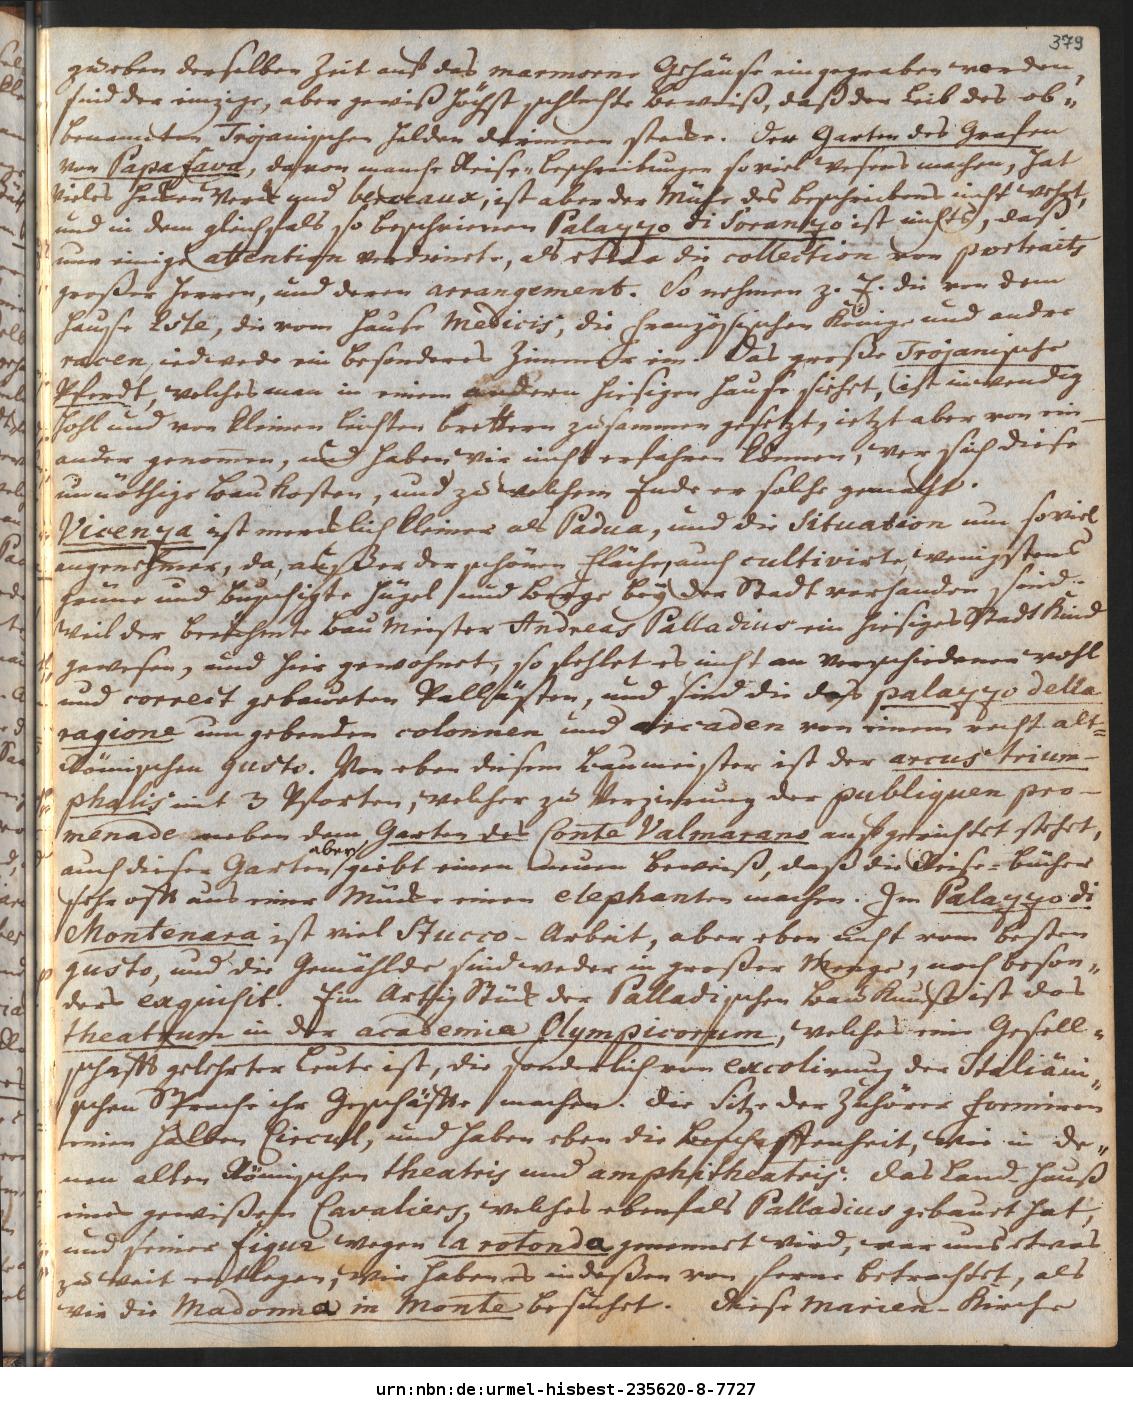 379
zu eben derselben Zeit auf das marmorne Gehäuse eingegraben worden,
sind der einzige, aber gewiß höchst schlechte beweiß, daß der Leib des ob-
benanten Trojanischen Helden darinnen stecke. Der Garten des Grafen
von Papafava, davon manche Reise-beschreibungen so viel wesens machen, hat
vieles Hecken Werck und berceaux, ist aber der Mühe des beschreibens nicht wehrt,
und in dem gleichfals so beschrienen Palazzo di Soranzo ist nichts, daß
nur einige attention verdiente, als etwa die collection von portraits
großer Herren, und deren arrangement. So nehmen z. E. die von dem
Hause Este, die vom Hause Medicis, die französischen Könige und andre
racen, iedwede ein besonderes Zimmer ein. Das große Trojanische
Pferdt, welches man in einem andern hiesigen Hause siehet, ist inwendig
hohl und von kleinen leichten brettern zusammen gesetzt, ietzt aber von ein-
ander genommen, und haben wir nicht erfahren können, wer sich diese
unnöthige baukosten, und zu welchem Ende er solche gemacht.
Vicenza ist mercklich kleiner als Padua, und die Situation um soviel
angenehmer, da, außer der schönen fläche, auch cultivirte, wenigstens
grüne und buschigte Hügel und berge bey der Stadt vorhanden sind.
Weil der berühmte bau Meister Andreas Palladius ein hiesiges Stadt Kind
gewesen, und hier gewohnet, so fehlet es nicht an verschiedenen wohl
und correct gebaueten Pallästen, und sind die das palazzo della
ragione umgebenden colonnen und arcaden von einem recht alt-
Römischen Gusto. Von eben diesem Baumeister ist der arcus trium-
phalis mit 3 Pforten, welcher zu Verzierung der publiquen pro-
menade neben dem Garten des Conte Valmarano aufgerichtet stehet,
auch dieser Garten aber giebt einen neuen beweiß, daß die Reise-bücher
sehr oft aus einer Mücke einen elephanten machen. Im Palazzo di
Montenara ist viel Stucco-Arbeit, aber eben nicht vom besten
gusto, und die Gemählde sind weder in großer Menge, noch beson-
ders exquisit. Ein Artig Stück der Palladischen bau Kunst ist das
theatrum in der academia Olympicorum, welches eine Gesell-
schafft gelehrter Leute ist, die sonderlich von excolirung der Italiäni-
schen Sprache ihr Geschäffte machen. Die Sitze der Zuhörer formiren
einen halben Circul, und haben eben die beschaffenheit, wie in de-
nen alten Römischen theatris und amphitheatris. Das Land-Hauß
eines gewißen Cavaliers, welches ebenfals Palladius gebauet hat,
und seiner figur wegen la rotonda genennet wird, war uns etwas
zu weit entlegen, wir haben es indeßen von ferne betrachtet, als
wir die Madonna in Monte besuchet. Diese Marien-Kirche
urn:nbn:de:urmel-hisbest-235620-8-7727